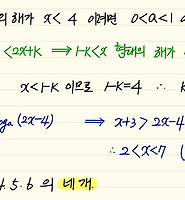 의 해가 x < 4 이려면 0<a<1
<2x+k ⟹ 1-k<x 형태의 해가
x<1-k 이므로 1-k=4 ∴ k
(2x-4) ⟹ x+3 > 2x-4
∴ 2<x<7
4. 5. 6 의 네 개.